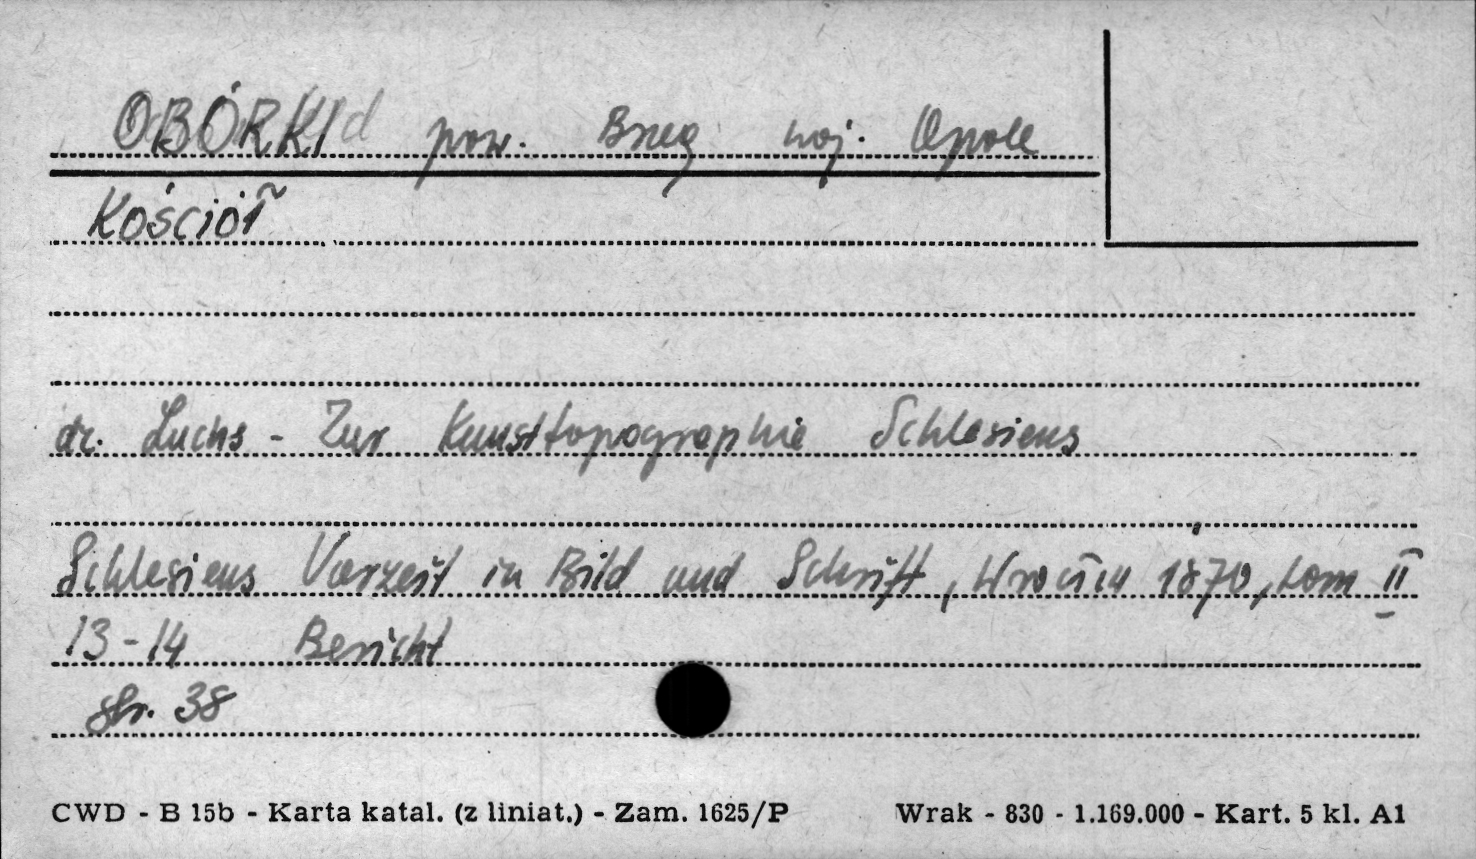 OBÓRKI pow. Brzeg woj. Opole
Kościół
dr. Luchs - Zur Kunsttopographie Schlesiens
Schlesiens Vorzeit in Bild und Schrift, Wrocław 1870, tom II
13-14 Bericht
str. 38
CWD - B 15b - Karta katal. (z liniat.) - Zam. 1625/P Wrak - 830 - 1.169.000 - Kart. 5 kl. A1